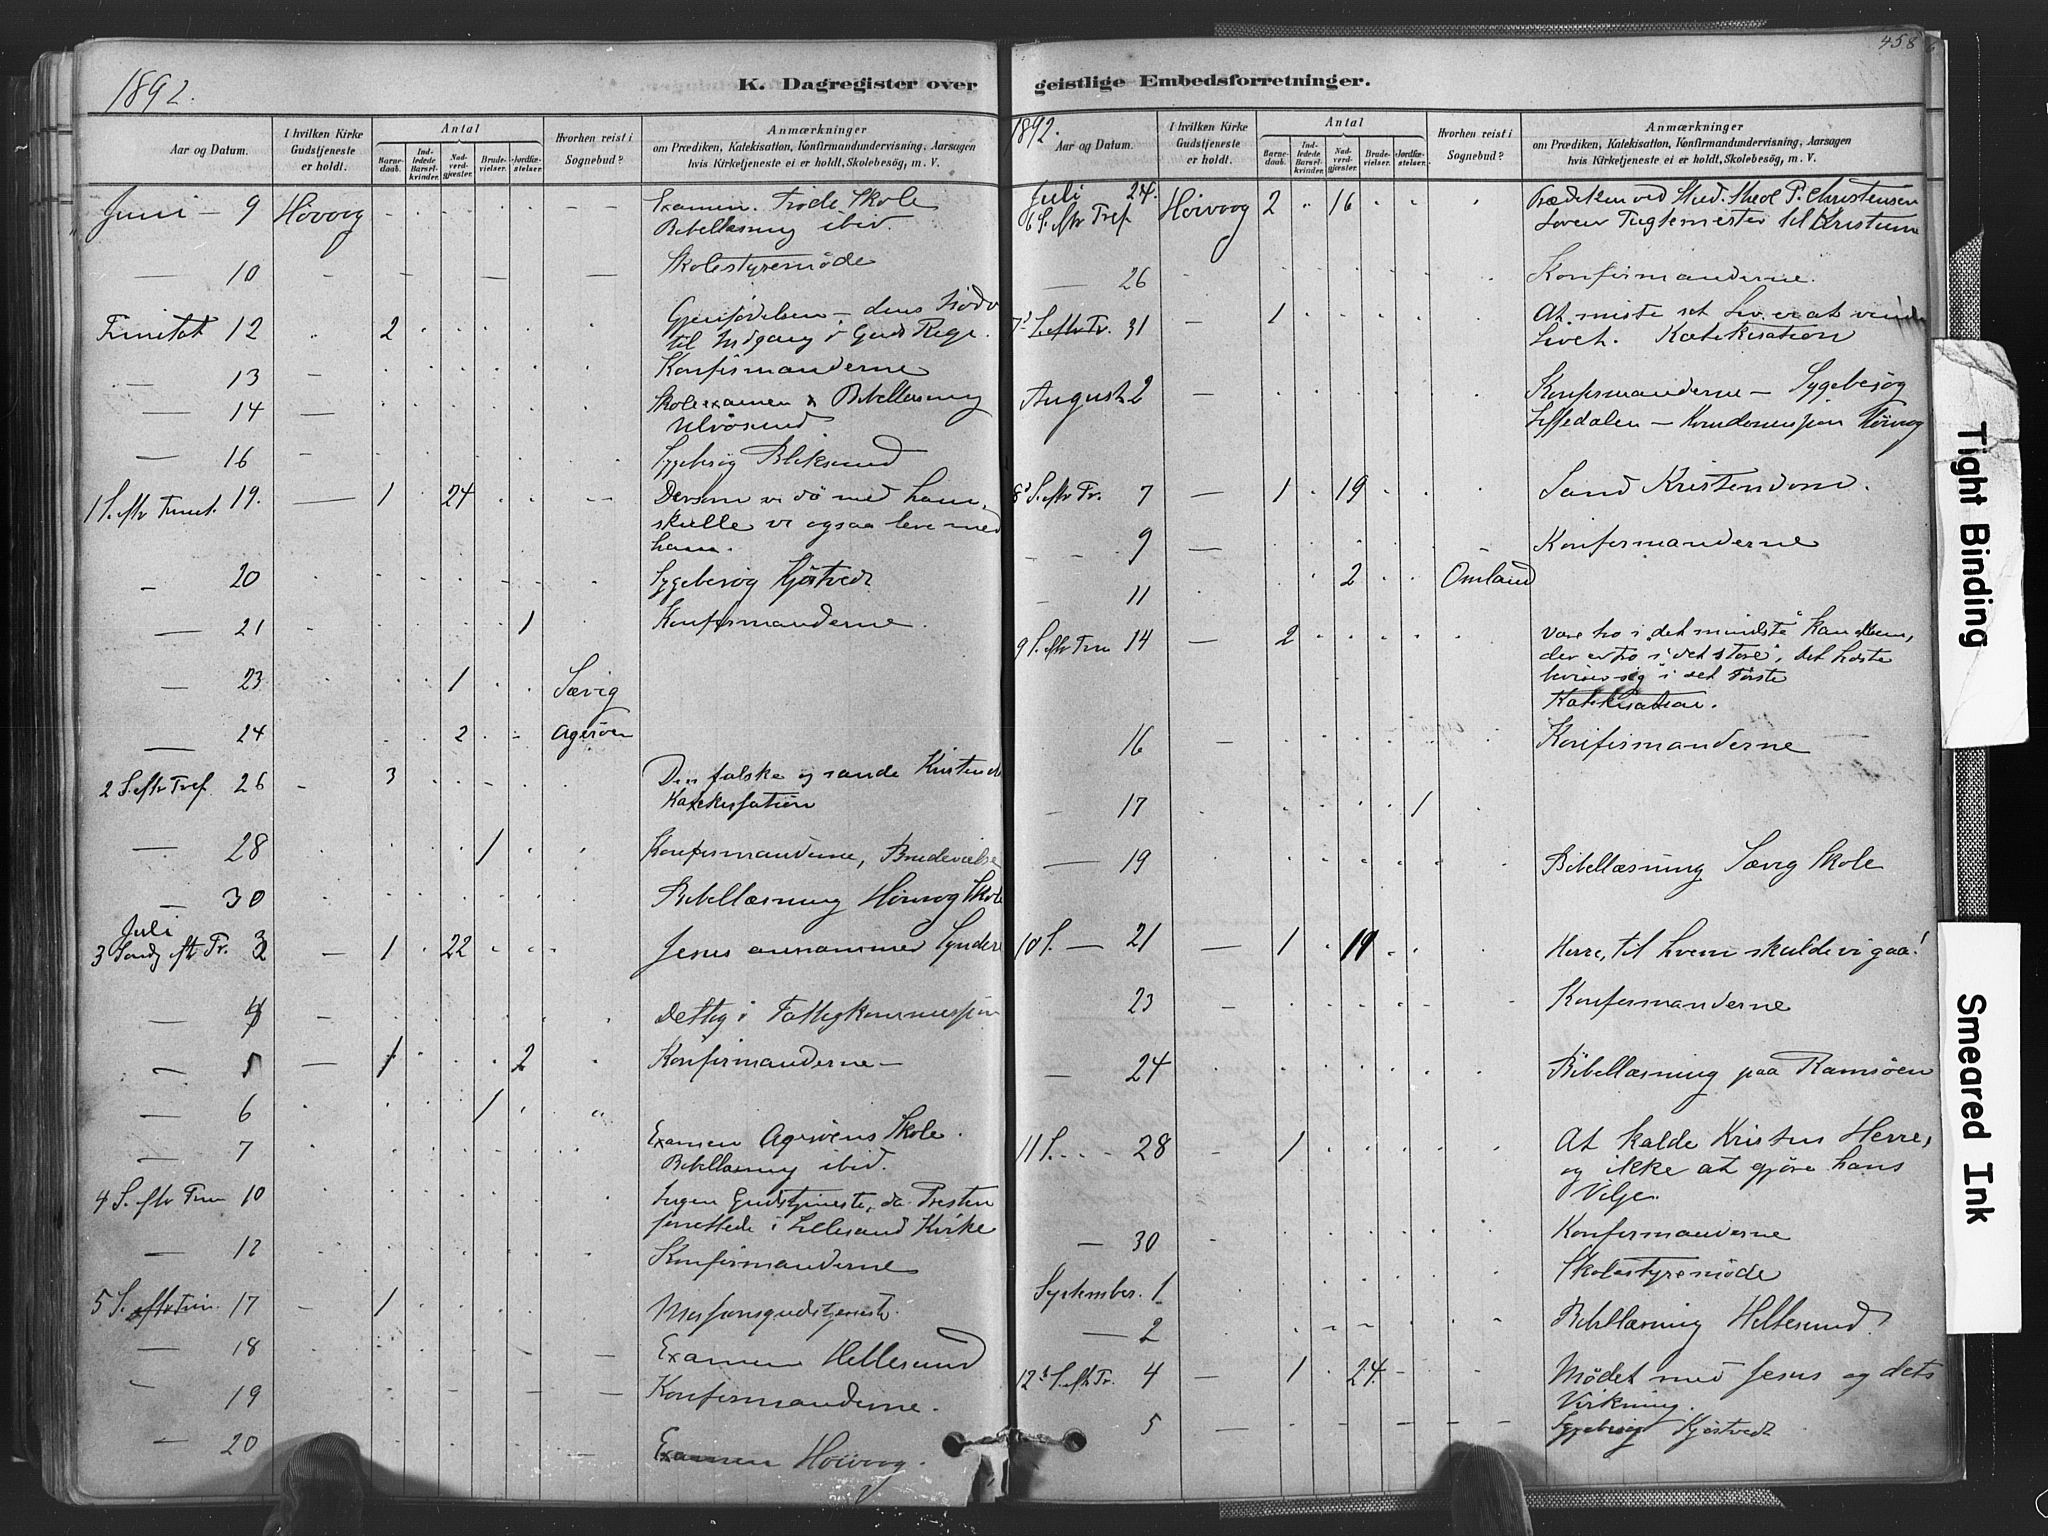 458
1892.
K. Dagregister over
Aar og Datum.
I hvilken Kirke Gudstjeneste er holdt.
Antal
Barnedaab.
Indledede Barselkvinder.
Nadverdgjæster.
Brudevielser.
Jordfæstelser.
Hvorhen reist i Sognebud?
Anmærkninger
om Prædiken, Katekisation, Konfirmandundervisning, Aarsagen
hvis Kirketjeneste ei er holdt, Skolebesøg, m. V.
Juni 9 Höivaag Examen. Skole
Bibellæsning ibid.
10 Skolestyremöde
Trinitat 12 2 Gjenfödelsen - dens
til Indgang i Guds Rige.
13 Konfirmanderne
14 Skoleexamen & Bibellæsning
Ulvösund
16 Sygebesög Bliksund
1 S. eftr Trinit. 19. 1 24 Dersom vi dö med ham,
skulle vi ogsaa leve med
ham.
20 Sygebesög Kjöstvedt
21 1 Konfirmanderne.
23 1 Sævig
24 2 Ageröen
2 S. eftr Tref 26 3 Den falske og sande
Katekisation
28 1 Konfirmanderne, Brudevielse
30 Bibellæsning Höivaag Skole
Juli
3 Sönd. eft Tr. 3 1 22 Jesus annammer Syndere
4 Deltog i
5 1 2 Konfirmanderne
6 1
7 Examen Ageröens Skole.
Bibellæsning ibid.
4 S. eftr Trin 10 Ingen Gudstjeneste, da Presten
forrettede i Lillesand Kirke
12 Konfirmanderne
5 S. eftr Trin. 17 1 Missionsgudstjeneste.
18 Examen Hellesund
19 Konfirmanderne.
20 Examen Höivaag.
geistlige Embedsforretninger.
1892.
Aar og Datum.
I hvilken Kirke Gudstjeneste er holdt.
Antal
Barnedaab.
Indledede Barselkvinder.
Nadverdgjæster.
Brudevielser.
Jordfæstelser.
Hvorhen reist i Sognebud?
Anmærkninger
om Prædiken, Katekisation, Konfirmandundervisning, Aarsagen
hvis Kirketjeneste ei er holdt, Skolebesøg, m. V.
Juli 24. Höivaag 2 16 Prædiken ved Stud. Theol P. Christensen
6 S. eftr Tref Loven Tugtemester til Kristum
26 Konfirmanderne.
7 S. eftr Tr. 31 1 At miste sit Liv er at vinde
Livet. Katekisation
August 2 Konfirmanderne - Sygebesög
Höivaag
8 S. eftr Tr. 7 1 19 Sand Kristendom.
9 Konfirmanderne
11 2 Omland
9 S. eftr Trin 14 2 Være tro i det mindste kan kun,
der er tro i det störe, det
beviser sig i det Förste
Katekisation.
16 Konfirmanderne
17 1
19 Bibellæsning Sævig Skole
10 S. 21 1 19 Herre, til hvem skulde vi gaa!
23 Konfirmanderne
24 Bibellæsning paa Ramsöen
11 S. 28 1 At kalde Kristus Herre,
og ikke at gjöre hans
Vilje.
30 Konfirmanderne
September 1 Skolestyremöde
2 Bibellæsning Hellesund.
12 S. eftr Tr. 4 1 24 Mödet med Jesus og dets
Virkning.
5 Sygebesög Kjöstvedt
Tight Binding
Smeared Ink